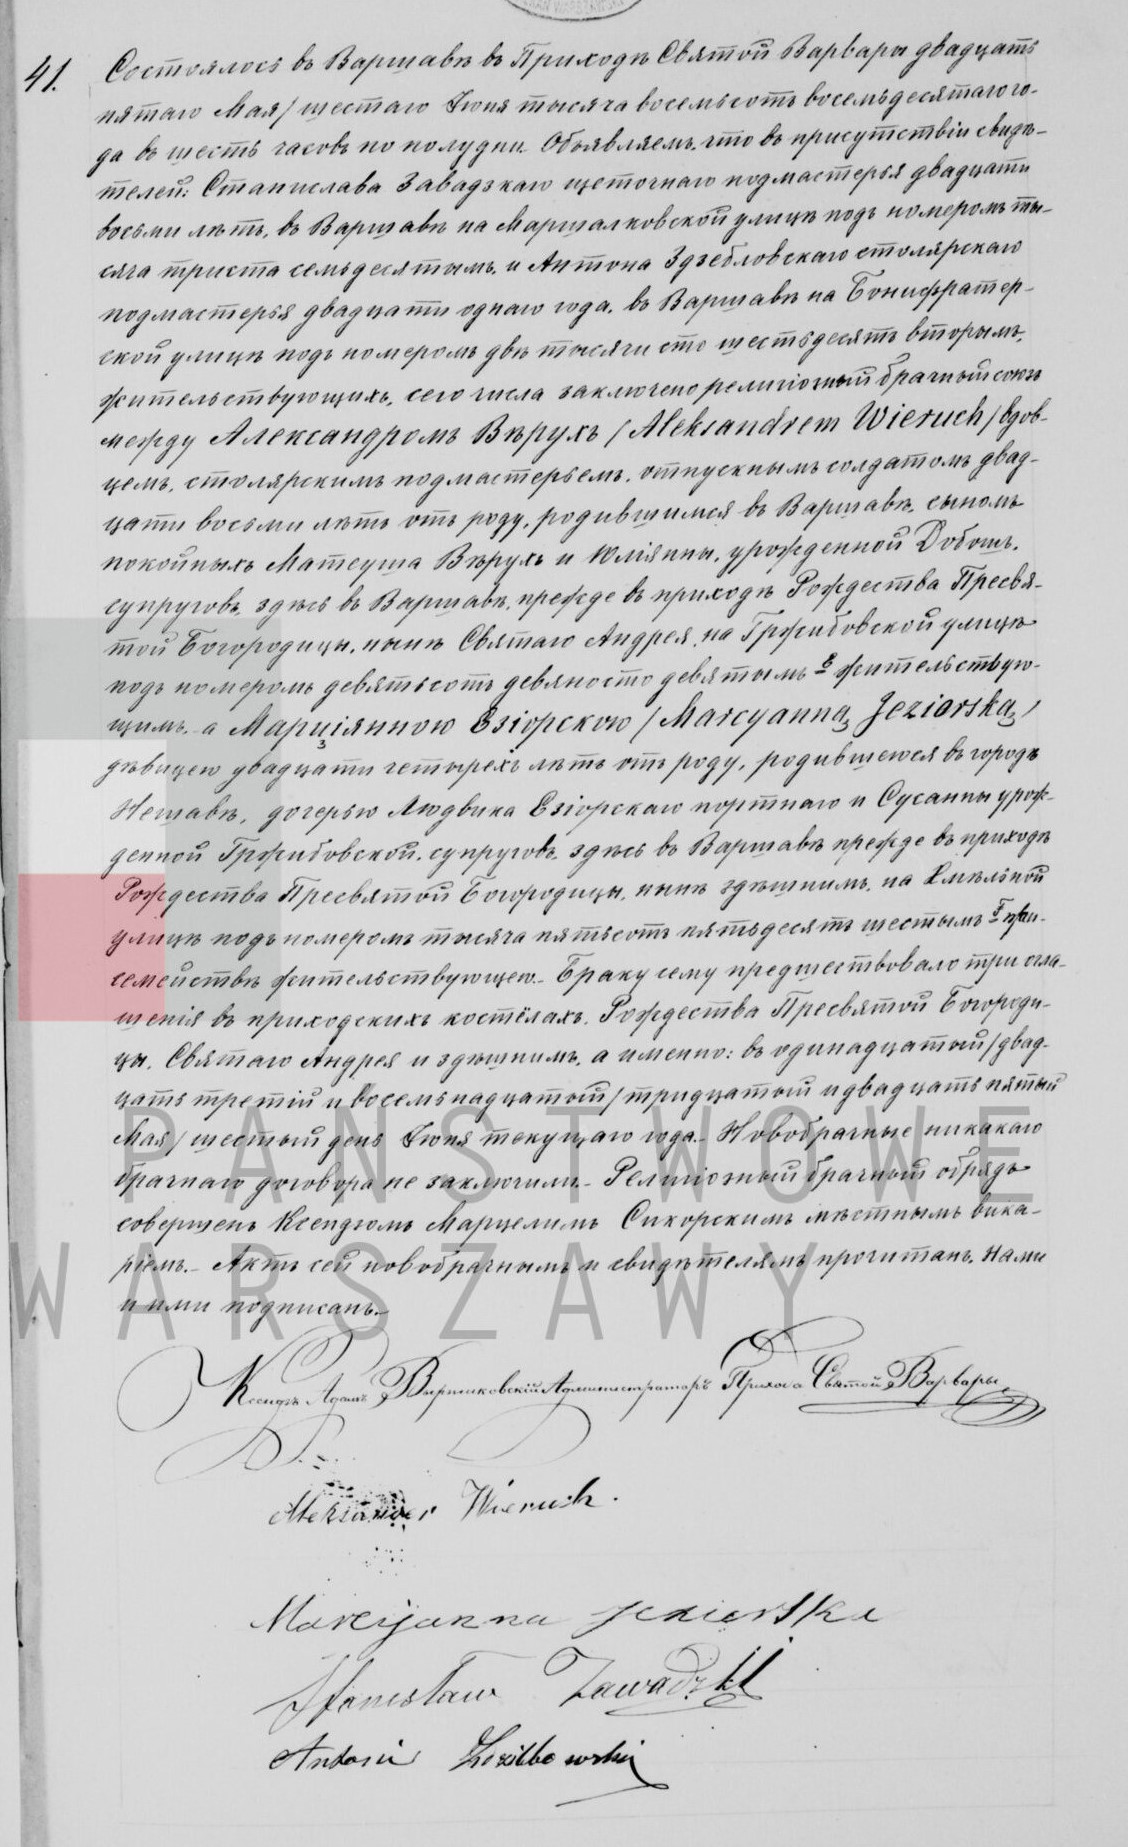 41.
Состоялось въ Варшавѣ въ Приходѣ Святой Варвары двадцать
пятаго Мая / шестаго Іюня тысяча восемьсотъ восемьдесятаго го-
да въ шесть часовъ по полудни. Объявляемъ, что въ присутствіи свидѣ-
телей: Станислава Завадзкаго щеточнаго подмастерья двадцати
восьми лѣтъ, въ Варшавѣ на Маршалковской улицѣ подъ номеромъ ты-
сяча триста семьдесятымъ, и Антона Здзебловскаго столярскаго
подмастерья двадцати однаго года, въ Варшавѣ на Бонифратер-
ской улицѣ подъ номеромъ двѣ тысячи сто шестьдесятъ вторымъ,
жительствующихъ, сего числа заключено религіозный брачный союзъ
между Александромъ Вѣрухъ / Aleksandrem Wieruch / вдов-
цемъ, столярскимъ подмастерьемъ, отпускнымъ солдатомъ двад-
цати восьми лѣтъ отъ роду, родившимся въ Варшавѣ, сыномъ
покойныхъ Матеуша Вѣрухъ и Юліянны, урожденной Добошъ,
супруговъ, здѣсь въ Варшавѣ, прежде въ приходѣ Рождества Пресвя-
той Богородицы, нынѣ Святаго Андрея, на Гржибовской улицѣ
подъ номеромъ девятьсотъ девяносто девятымъ в жительствую-
щимъ, а Марціянною Езіорскою / Marcyanną Jeziorską /
дѣвицею двадцати четырехъ лѣтъ отъ роду, родившеюся въ городѣ
Нешавѣ, дочерью Людвика Езіорскаго портнаго и Сусанны урож-
денной Гржибовской, супруговъ, здѣсь въ Варшавѣ прежде въ приходѣ
Рождества Пресвятой Богородицы, нынѣ здѣшнимъ, на Хмѣльной
улицѣ подъ номеромъ тысяча пятьсотъ пятьдесятъ шестымъ при
семействѣ жительствующею. Браку сему предшествовало три огла-
шенія въ приходскихъ костёлахъ, Рождества Пресвятой Богороди-
цы, Святаго Андрея и здѣшнимъ, а именно: въ одинадцатый / двад-
цать третій и восемьнадцатый / тридцатый и двадцать пятый
Мая / шестый день Іюня текущаго года. Новобрачные никакаго
брачнаго договора не заключили. Религіозный брачный обрядъ
совершенъ Ксендзомъ Марцелимъ Сикорскимъ мѣстнымъ вика-
ріемъ. Актъ сей новобрачнымъ и свидѣтелямъ прочитанъ, нами
и ими подписанъ.
Ксендзъ Адамъ Администраторъ Прихода Святой Варвары
Aleksander Wieruch.
Marcyanna Jeziorska
Stanisław Zawadzki
Antoni
PAŃSTWOWE
WARSZAWY